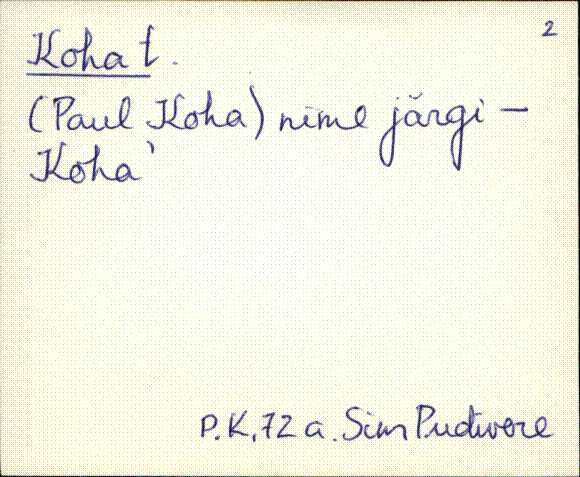 2
Koha t.
(Paul Koha) nime järgi –
Koha'
P.K, 72 a. Sim Pudivere